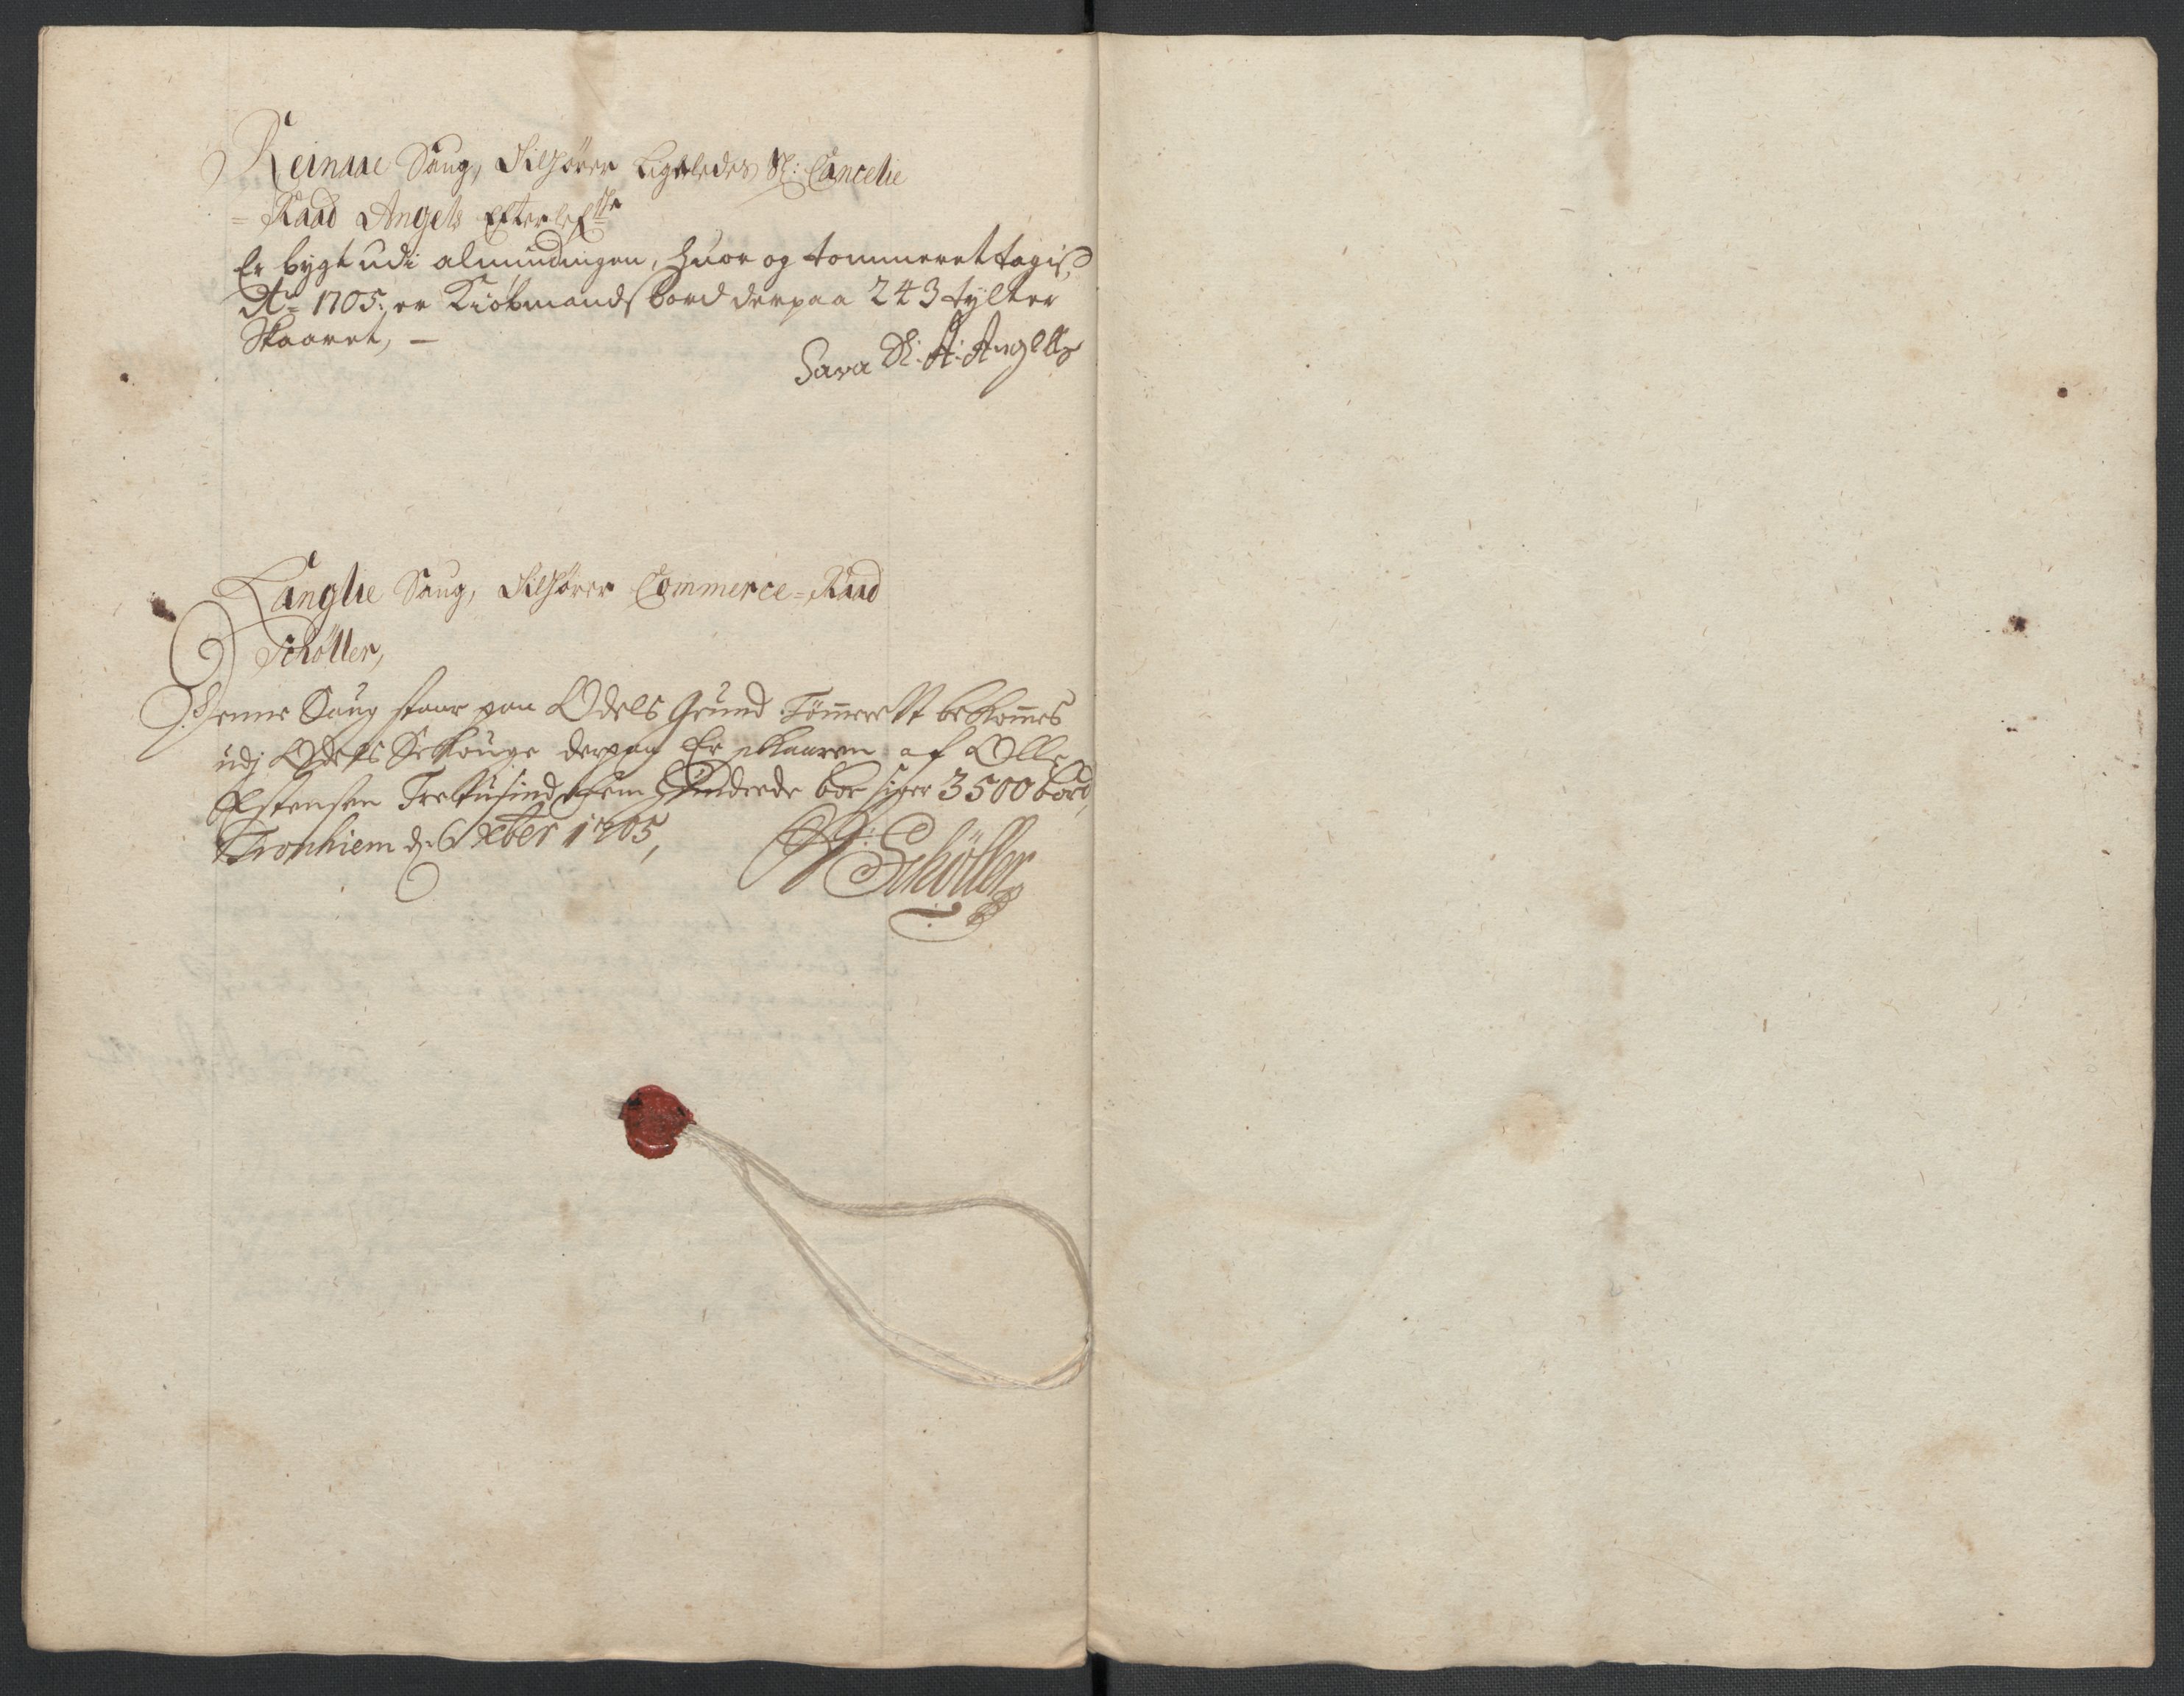 Reinaae Saug, Tilhører Ligeledes Sl: Cancelie
=Raad Angels Efterlefske
Er bygt udi almindingen, huor og tommeret tagis,
Ao 1705: er Kiøbmands bord derpaa 243 tylter
Skaaret, —
Sara Sl. A: Angells
Langlie Saug, Tilhører Commerce=Raad
Schøller,
Denne Saug staar paa Odels Grund Tømmerett bekomes
udj Odels Skouge derpaa Er skaaren af Olle
Estensen Tretusind fem Hunderde bor siger 3500 bord,
Tronhiem d: Xber 1705,
Schøller